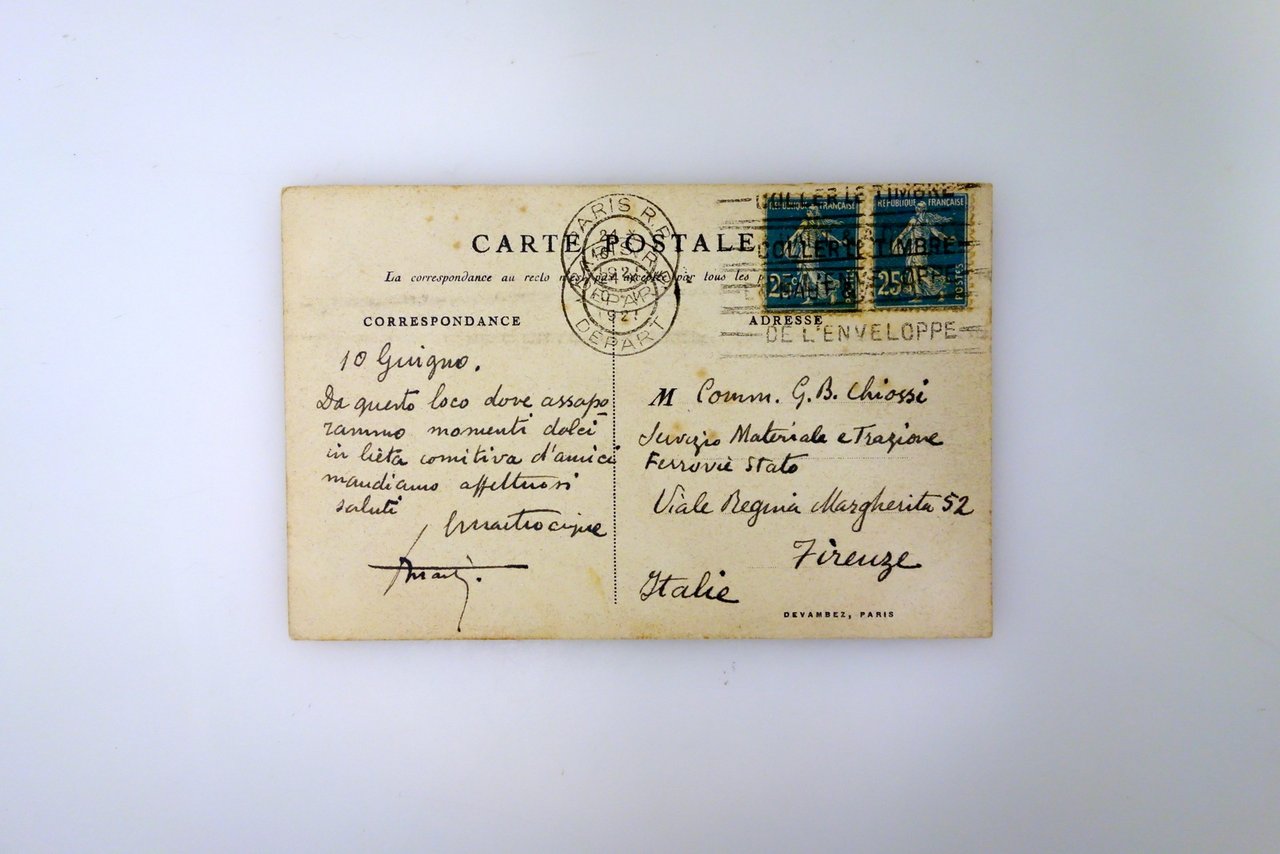 CARTE POSTALE
La correspondance au recto n'est pas acceptée par tous les
PARIS R.P.
DÉPART
1921
COLLER LE TIMBRE
DE L'ENVELOPPE
REPUBLIQUE FRANÇAISE
25c
POSTES
REPUBLIQUE FRANÇAISE
25c
POSTES
CORRESPONDANCE
10 Giugno.
Da questo loco dove assapo
rammo momenti dolci
in lieta comitiva d'amici
mandiamo affettuosi
saluti
ADRESSE
M Comm. G. B. Chiossi
Servizio Materiale e Trazione
Ferrovie Stato
Viale Regina Margherita 52
Firenze
Italie
DEVAMBEZ, PARIS